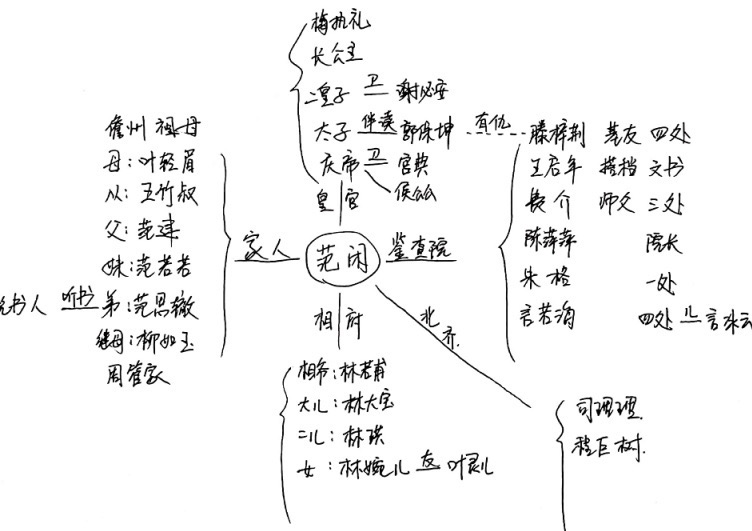 梅执礼
长公主
二皇子 卫 谢必安
太子 伴读 郭保坤 有仇 滕梓荆 基友 四处
儋州祖母
庆帝 卫 宫典
王启年 搭档 文书
母:叶轻眉
侯公公
皇宫
费介 师父 三处
从:五竹叔
父:范建
家人 范闲 鉴查院
陈萍萍 院长
妹:范若若
朱格 一处
说书人 听书 弟:范思辙
相府
北齐
言若海 四处 儿 言冰云
继母:柳如玉
周管家
相爷:林若甫
大儿:林大宝
二儿:林珙
女:林婉儿 友 叶灵儿
司理理
程巨树